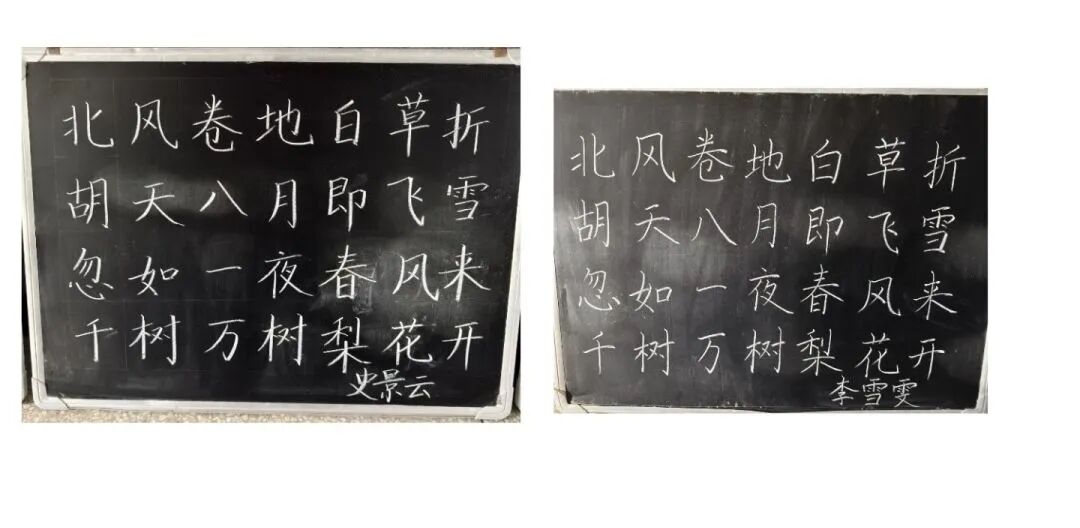 北风卷地白草折
胡天八月即飞雪
忽如一夜春风来
千树万树梨花开
史景云
北风卷地白草折
胡天八月即飞雪
忽如一夜春风来
千树万树梨花开
李雪雯